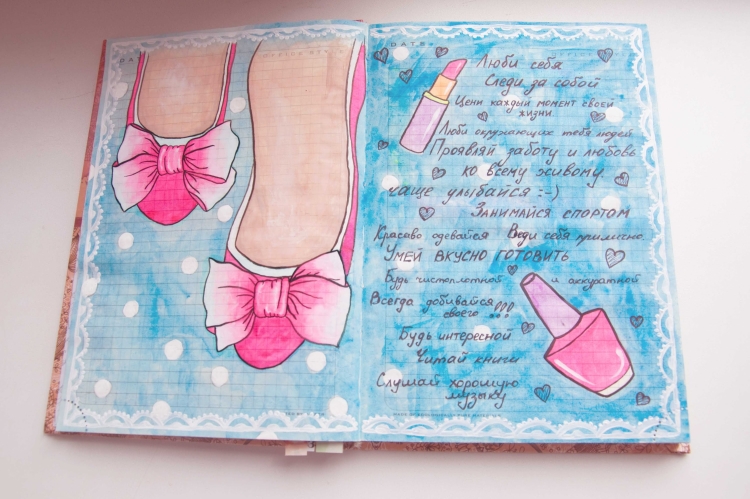 DATE
Люби себя
Следи за собой
Цени каждый момент своей
жизни
Люби окружающих тебя людей
Проявляй заботу и любовь
ко всему живому.
Чаще улыбайся :-)
Занимайся спортом
Красиво одевайся Веди себя прилично.
Умей вкусно готовить
Будь чистоплотной и аккуратной
Всегда добивайся
своего !!!
Будь интересной
Читай книги
Слушай хорошую
музыку